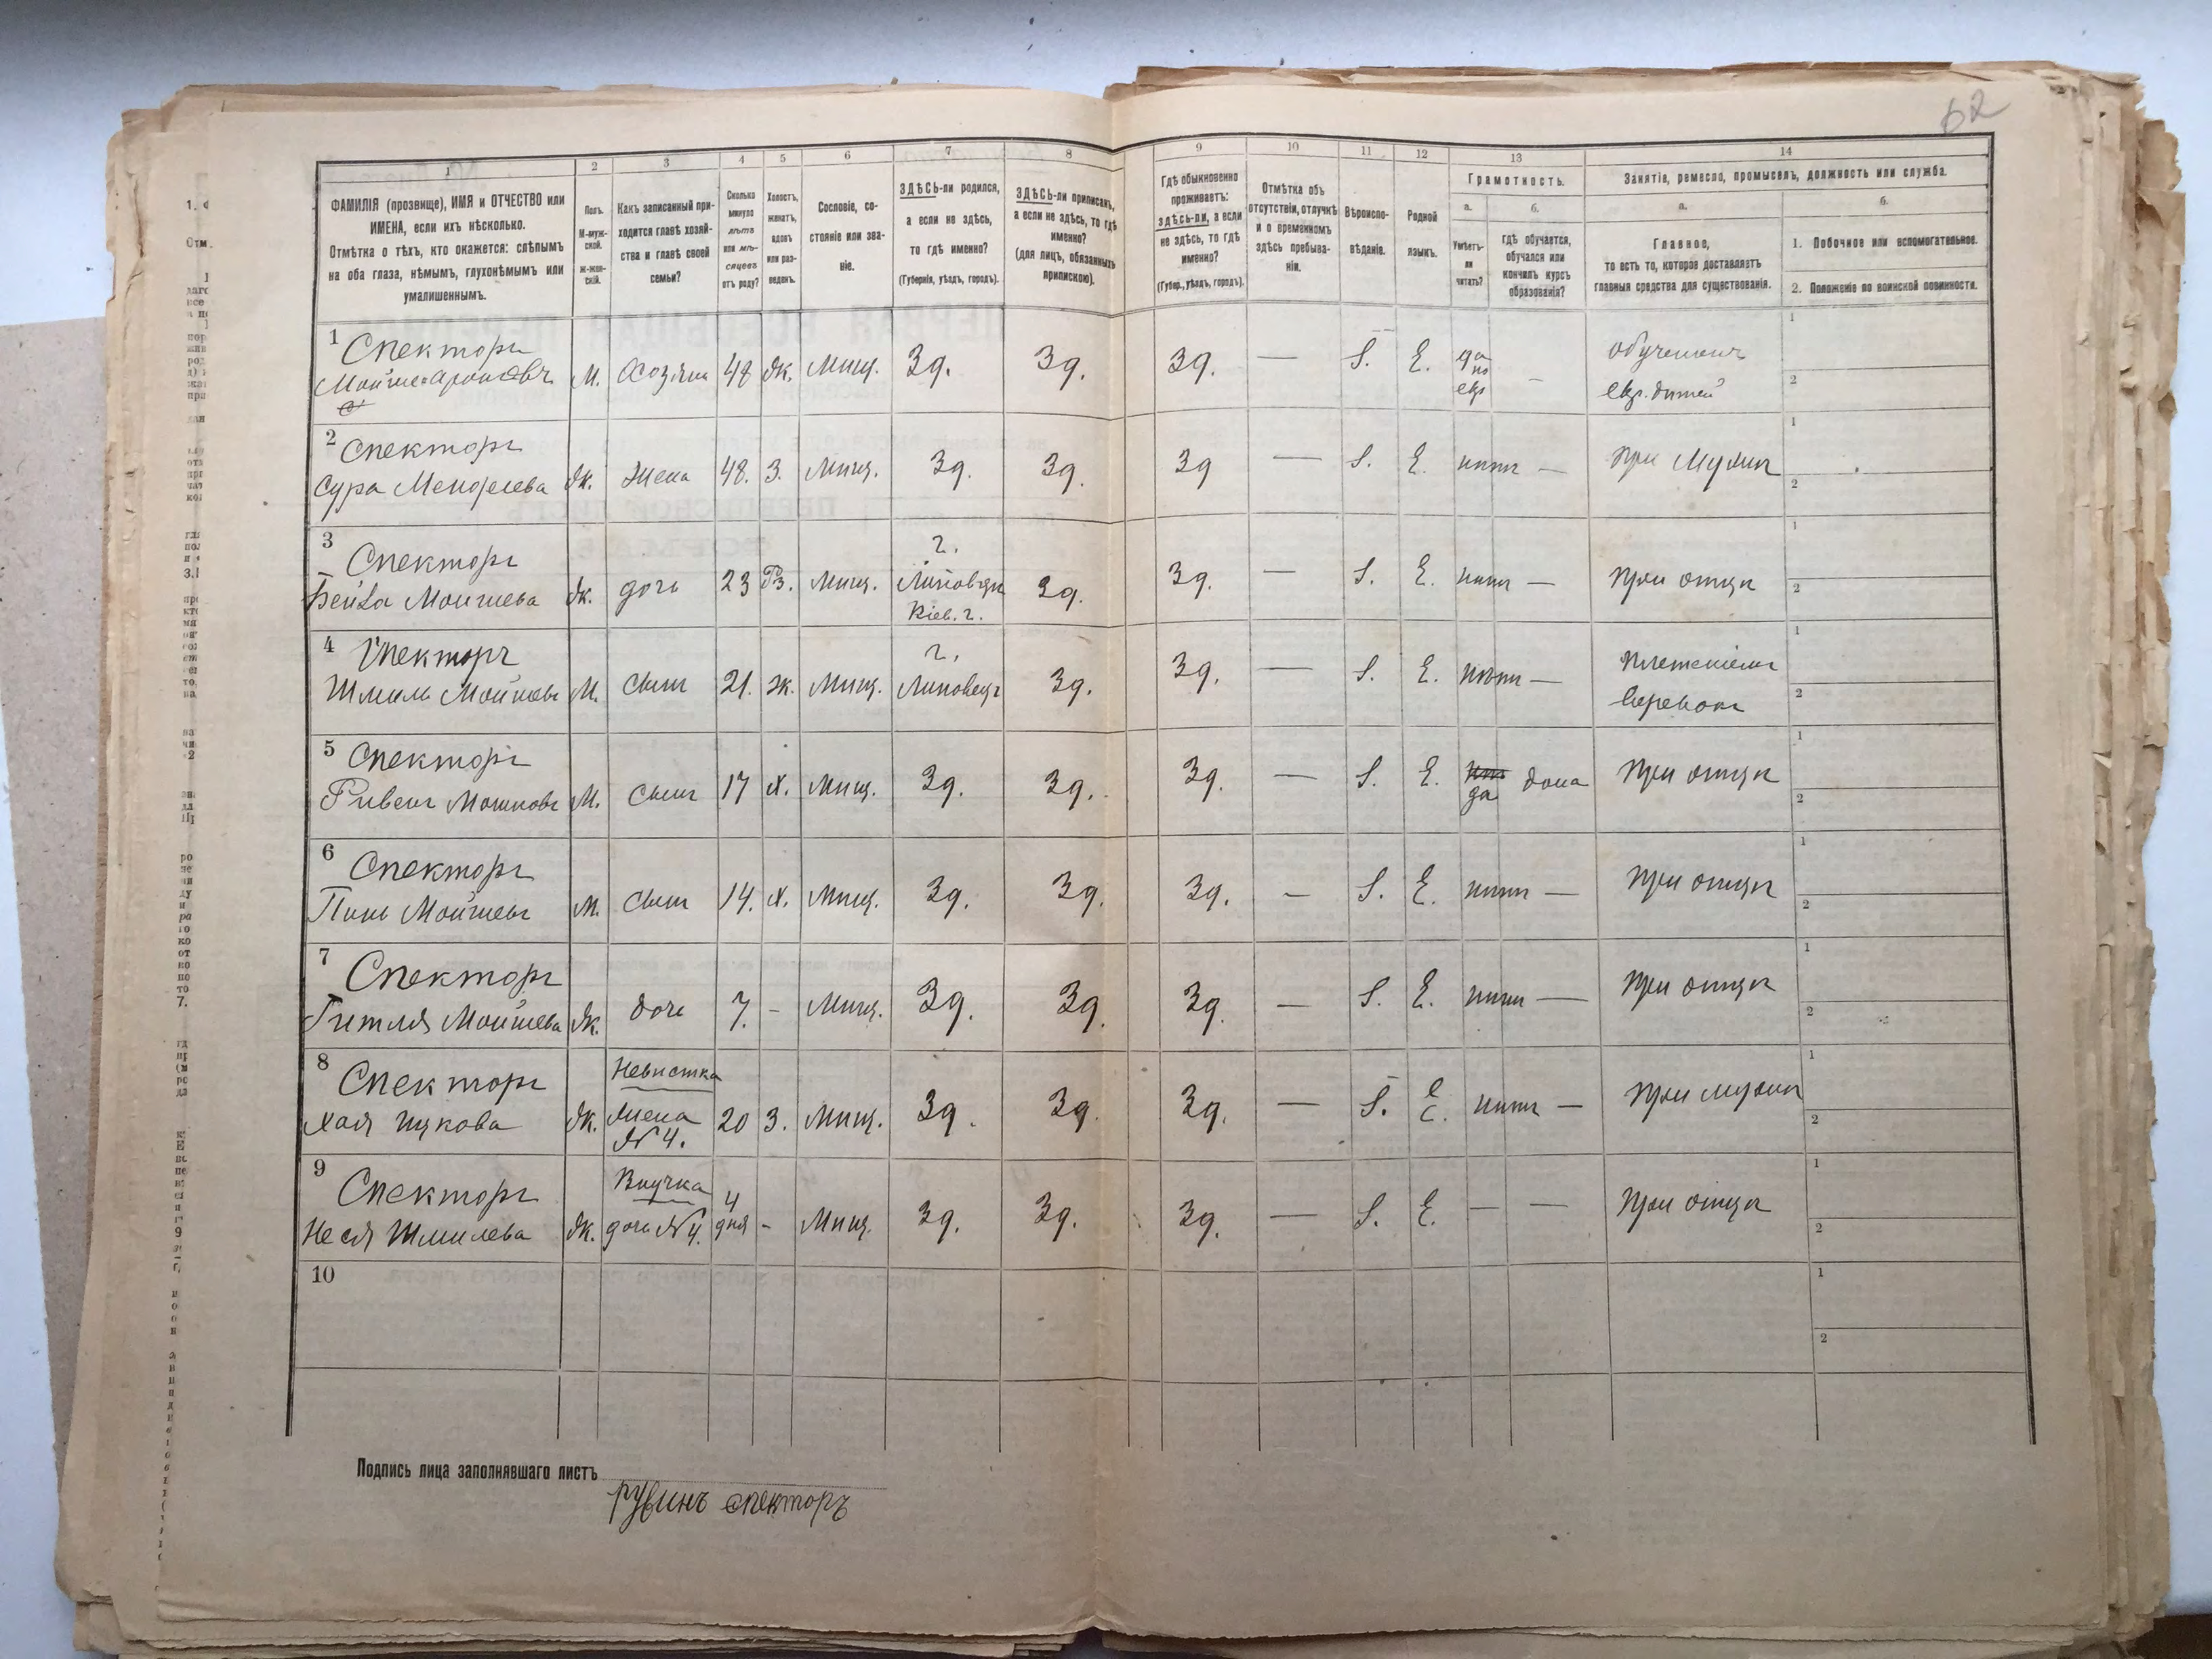 62
1 2 3 4 5 6 7 8 9 10 11 12 13 14
ФАМИЛІЯ (прозвище), ИМЯ и ОТЧЕСТВО или
ИМЕНА, если ихъ нѣсколько.
Отмѣтка о тѣхъ, кто окажется: слѣпымъ
на оба глаза, нѣмымъ, глухонѣмымъ или
умалишеннымъ.
Полъ.
М-муж-
ской.
Ж-жен-
скій.
Какъ записанный при-
ходится главѣ хозяй-
ства и главѣ своей
семьи?
Сколько
минуло
лѣтъ
или мѣ-
сяцевъ
отъ роду?
Холостъ,
женатъ,
вдовъ
или раз-
веденъ.
Сословіе, со-
стояніе или зва-
ніе.
ЗДѢСЬ-ли родился,
а если не здѣсь,
то гдѣ именно?
(Губернія, уѣздъ, городъ).
ЗДѢСЬ-ли приписанъ,
а если не здѣсь, то гдѣ
именно?
(для лицъ, обязанныхъ
припискою).
Гдѣ обыкновенно
проживаетъ:
здѣсь-ли, а если
не здѣсь, то гдѣ
именно?
(Губер., уѣздъ, городъ).
Отмѣтка объ
отсутствіи, отлучкѣ
и о временномъ
здѣсь пребыва-
ніи.
Вѣроиспо-
вѣданіе.
Родной
языкъ.
Грамотность.
а.
Умѣетъ-
ли
читать?
б.
гдѣ обучается,
обучался или
кончилъ курсъ
образованія?
Занятіе, ремесло, промыселъ, должность или служба.
а.
Главное,
то есть то, которое доставляетъ
главныя средства для существованія.
б.
1. Побочное или вспомогательное.
2. Положеніе по воинской повинности.
1 Спекторъ
М. Хозяин 48 Ж. Мищ. Зд. Зд. Зд. — Е. да по евр —
евр. дитей
1
2
2 Спекторъ
Сура Менделева Ж. Жена 48. З. Мищ. Зд. Зд. Зд — Е. нить — При Мужи
1
2
3 Спекторъ
Мошиева Ж. дочь 23 Мищ. г. Липовци Кіев. г. Зд. Зд. — Е. нить — При отци
1
2
4 Спекторъ
Шмиль М. Сынъ 21. Ж. Мищ. г. Липовець Зд. Зд. — Е. нить — Плетеніемъ
Веревокъ
1
2
5 Спекторъ
Рувенъ Мошковъ М. Сынъ 17 Х. Мищ. Зд. Зд. Зд. — Е. да дома При отци
1
2
6 Спекторъ
Пинь Мойшевъ М. Сынъ 14. Х. Мищ. Зд. Зд. Зд. — Е. нить — При отци
1
2
7 Спекторъ
Гитля Мойшева Ж. дочь 7. - Мищ. Зд. Зд. Зд. — Е. нить — При отци
1
2
8 Спекторъ
Хая Ицкова Ж. Невистка жена №4. 20 З. Мищ. Зд. Зд. Зд. — нить — При мужи
1
2
9 Спекторъ
Неся Шмилева Ж. Внучка дочь №4. 4 дня - Мищ. Зд. Зд. Зд. — Е. — — При отци
1
2
10
1
2
Подпись лица заполнявшаго листъ
рувинъ спекторъ